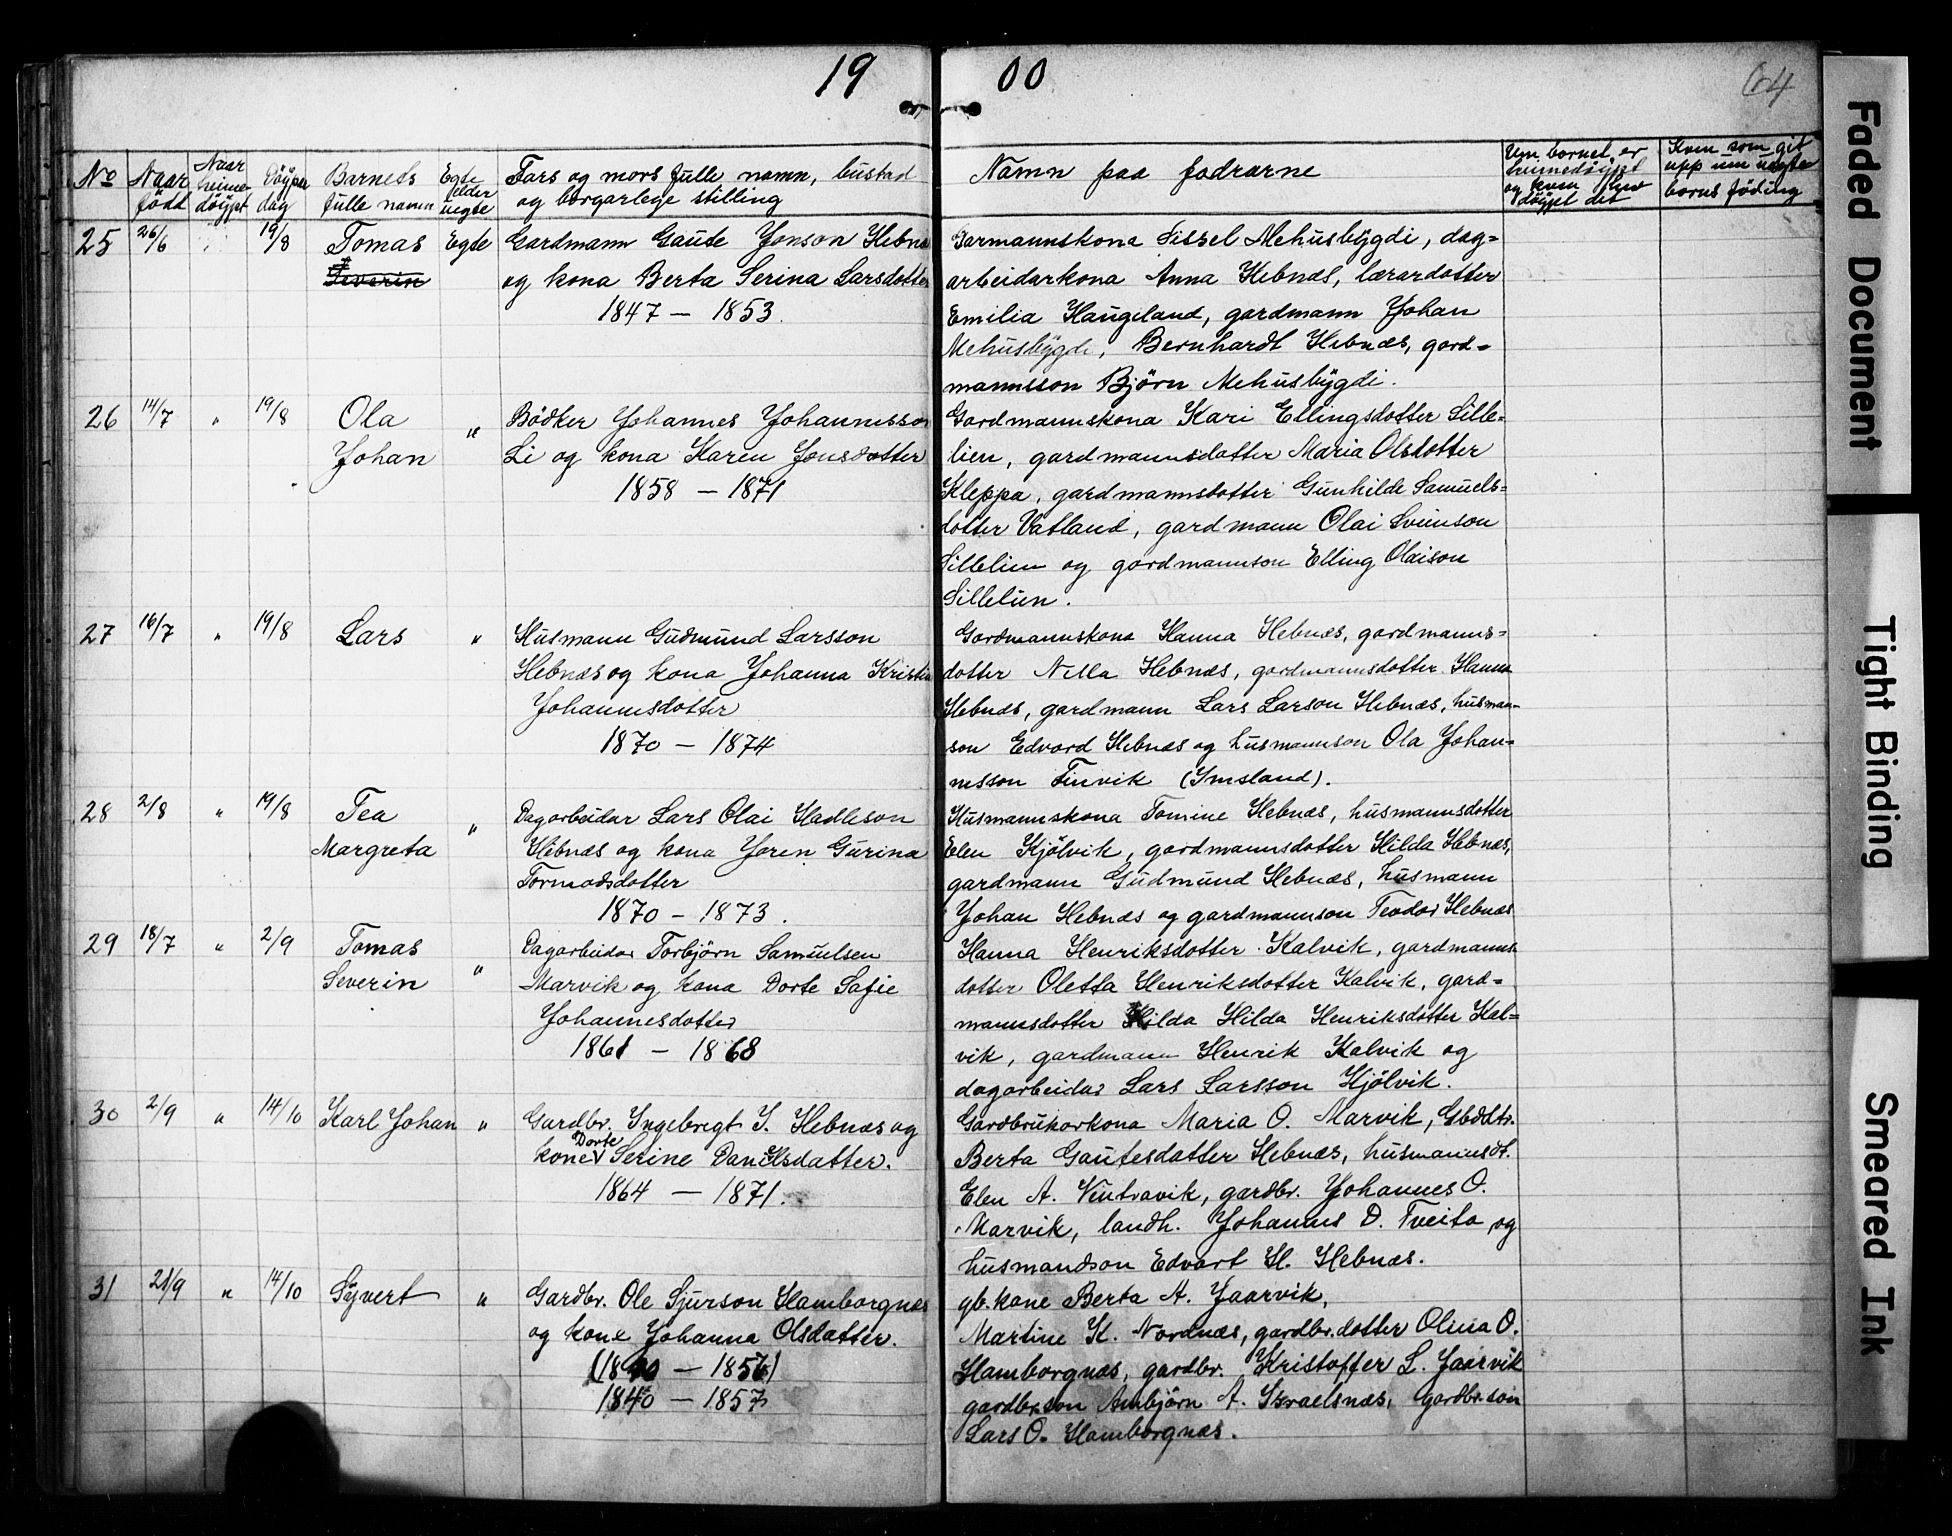 19 00
64
No
Naar född
Naar heimedöypt
Döypedag
Barnets fulle namn
Egte elder uegte
Fars og mors fulle namn, bustad og borgarlege stilling
Namn paa fadrarne
Um bornet er heimedöypt og kven hev döypt det
Kven som git upp um uegte borns föding
25 26/6 19/8 Tomas Severin Egte
Gardmann Gaute Jonson Hebnæs
og kona Berta Serina Larsdotter
1847 — 1853.
Garmannskona Sissel Mehusbygdi, dag=
arbeidarkona Anna Hebnæs, lærardotter
Emilia Haugeland, gardmann Johan
Mehusbygdi, Bernhardt Hebnæs, gard=
mannsson Björn Mehusbygdi.
26 14/7 " 19/8 Ola Johan "
Bödker Johannes Johannesson
Li og kona Karen Jonsdotter
1858 — 1871
Gardmannskona Kari Ellingsdotter Sille=
lien, gardmannsdotter Maria Olsdotter
Kleppa, gardmannsdotter Gunhilde Samuels=
dotter Vatland, gardmann Olai Sveinson
Sillelien og gardmannson Elling Olaison
Sillelien.
27 16/7 " 19/8 Lars "
Husmann Gudmund Larsson
Hebnæs og kona Johanna Kristin
Johannesdotter
1870 — 1874
Gardmannskona Hanna Hebnæs, gardmanns=
dotter Nella Hebnæs, gardmannsdotter Hanna
Hebnæs, gardmann Lars Larson Hebnæs, husman=
son Edvard Hebnæs og husmannson Ola Johan=
nesson Finvik (Imsland).
28 2/8 " 19/8 Tea Margreta "
Dagarbeidar Lars Olai Hadleson
Hebnæs og kona Joren Gurina
Tormodsdotter
1870 — 1873.
Husmannskona Tomine Hebnæs, husmannsdotter
Elen Kjölvik, gardmannsdotter Hilda Hebnæs,
gardmann Gudmund Hebnæs, husmann
Johan Hebnæs og gardmannson Teodor Hebnæs
29 18/7 " 2/9 Tomas Severin "
Dagarbeidar Torbjörn Samuelsen
Marvik og kona Dorte Safie
Johannesdotter
1861 — 1868
Hanna Henriksdotter Kalvik, gardmanns
dotter Oletta Henriksdotter Kalvik, gard=
mannsdotter Hilda Hilda Henriksdotter Kal=
vik, gardmann Henrik Kalvik og
dagarbeidar Lars Larsson Kjölvik.
30 2/9 " 14/10 Karl Johan "
Gardbr. Ingebregt J. Hebnæs og
kone Dorte Serine Danielsdatter.
1864 — 1871.
Gardbrukarkona Maria O. Marvik, Gbrdtr.
Berta Gautesdatter Hebnæs, husmannsdt.
Elen A. Vintravik, gardbr. Johannes O.
Marvik, landh. Johannes D. Tveita, og
husmandson Edvart H. Hebnæs.
31 21/9 " 14/10 Syvert "
Gardbr. Ole Sjurson Hamborgnæs
og kone Johanna Olsdatter.
(1840 — 1857)
1840 — 1857
gb. kone Berta A. Jaarvik,
Martine K. Nordnæs, gardbr. dotter Olina O.
Hamborgnæs, gardbr. Kristoffer L. Jaarvik
gardbr. son Ambjörn A. Israelsnæs, gardbr. son
Lars O. Hamborgnæs.
Faded Document
Tight Binding
Smeared Ink